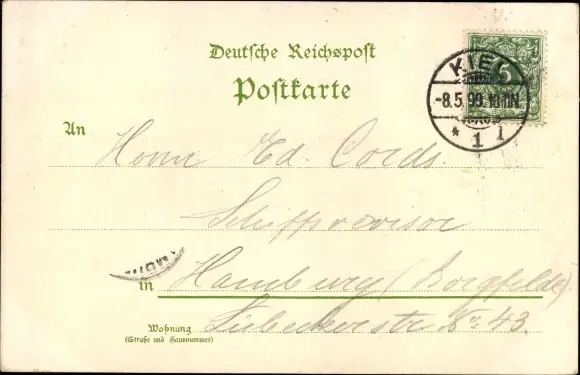 Deutsche Reichspost
Postkarte
KIEL
-8.5.99.10-11N.
* 1 l
5
An
Herrn Ed. Cords.
Schiffsrevisor
in Hamburg (Borgfelde)
Wohnung
(Straße und Hausnummer)
Lübeckerstr. No. 43.